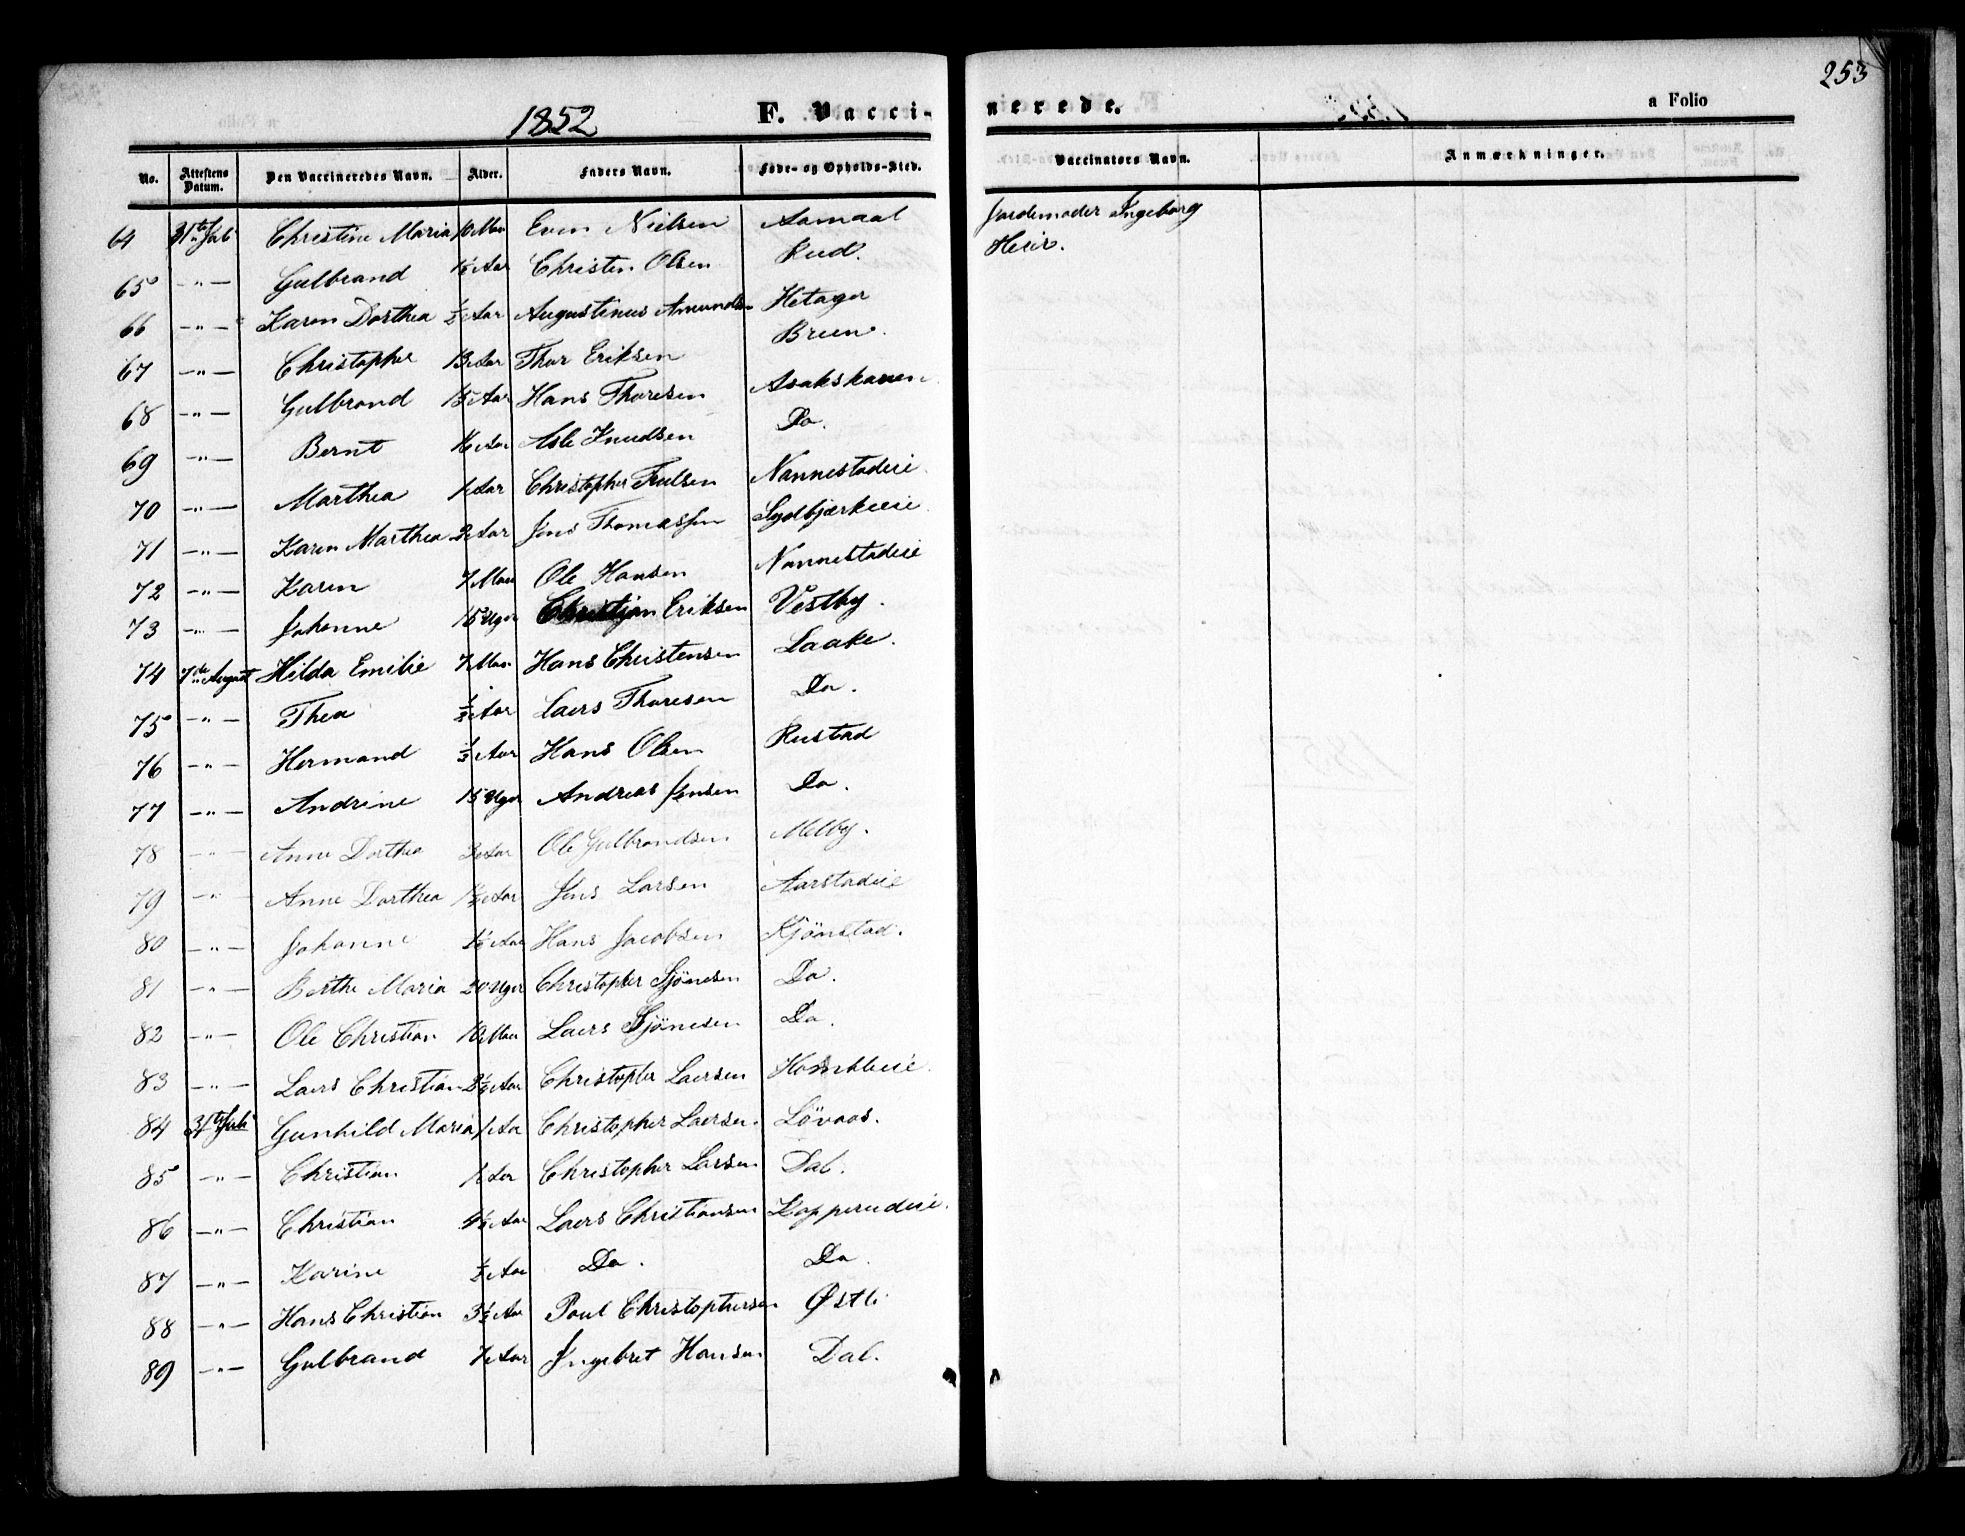 253
1852 F. Vaccinerede. a Folio
No. Attestens Datum. Den Vaccineredes Navn. Alder. Faders Navn. Føde- og Opholds-Sted. Vaccinators Navn. Anmærkninger.
64 31te Juli Christine Maria 10 Maan Even Nielsen Aamaal Jordemoder Ingeborg
65 —"— Gulbrand 1½ Aar Christen Olsen Rud. Heier.
66 —"— Karen Dorthea ½ Aar Augustinus Amundsen Hetager
67 —"— Christopher Aar Thor Eriksen Breen.
68 —"— Gulbrand Aar Hans Thoresen Asakskoven
69 —"— Bernt Aar Asle Knudsen Do.
70 —"— Marthea Aar Christopher Nannestadeie.
71 —"— Karen Marthea 2 Aar Jens Thomassen Sydbjærkeeie.
72 —"— Karen 7 Maan Ole Hansen Nannestadeie
73 —"— Johanne 15 Uger Christjan Eriksen Vestby.
74 7de August Hilda Emilie 7 Maan Hans Christensen Laake.
75 —"— Thea ½ Aar Laers Thoresen Do.
76 —"— Hermand ½ Aar Hans Olsen Rustad
77 —"— Andrine 15 Uger Andreas Jensen Do.
78 —"— Anne Dorthea Aar Ole Gulbrandsen Melby.
79 —"— Anne Dorthea 1½ Aar Jens Larsen Aarstadeie
80 —"— Johanne 1½ Aar Hans Jacobsen Kjönstad.
81 —"— Berthe Maria 20 Uger Christopher Sjönesen Do.
82 —"— Ole Christian 10 Maan Laers Sjönesen Do.
83 —"— Laers Christian 2½ Aar Christopher Laersen
84 31te Juli Gunhild Maria 1 Aar Christopher Laersen. Lövaas.
85 —"— Christian Aar Christopher Larsen Dal.
86 —"— Christian 4½ Aar Laers Christiansen Kopperudeie.
87 —"— Karine ½ Aar Do. Do.
88 —"— Hans Christian 3½ Aar Poul Christophersen Østli
89 —"— Gulbrand Aar Ingebret Hansen Dal.